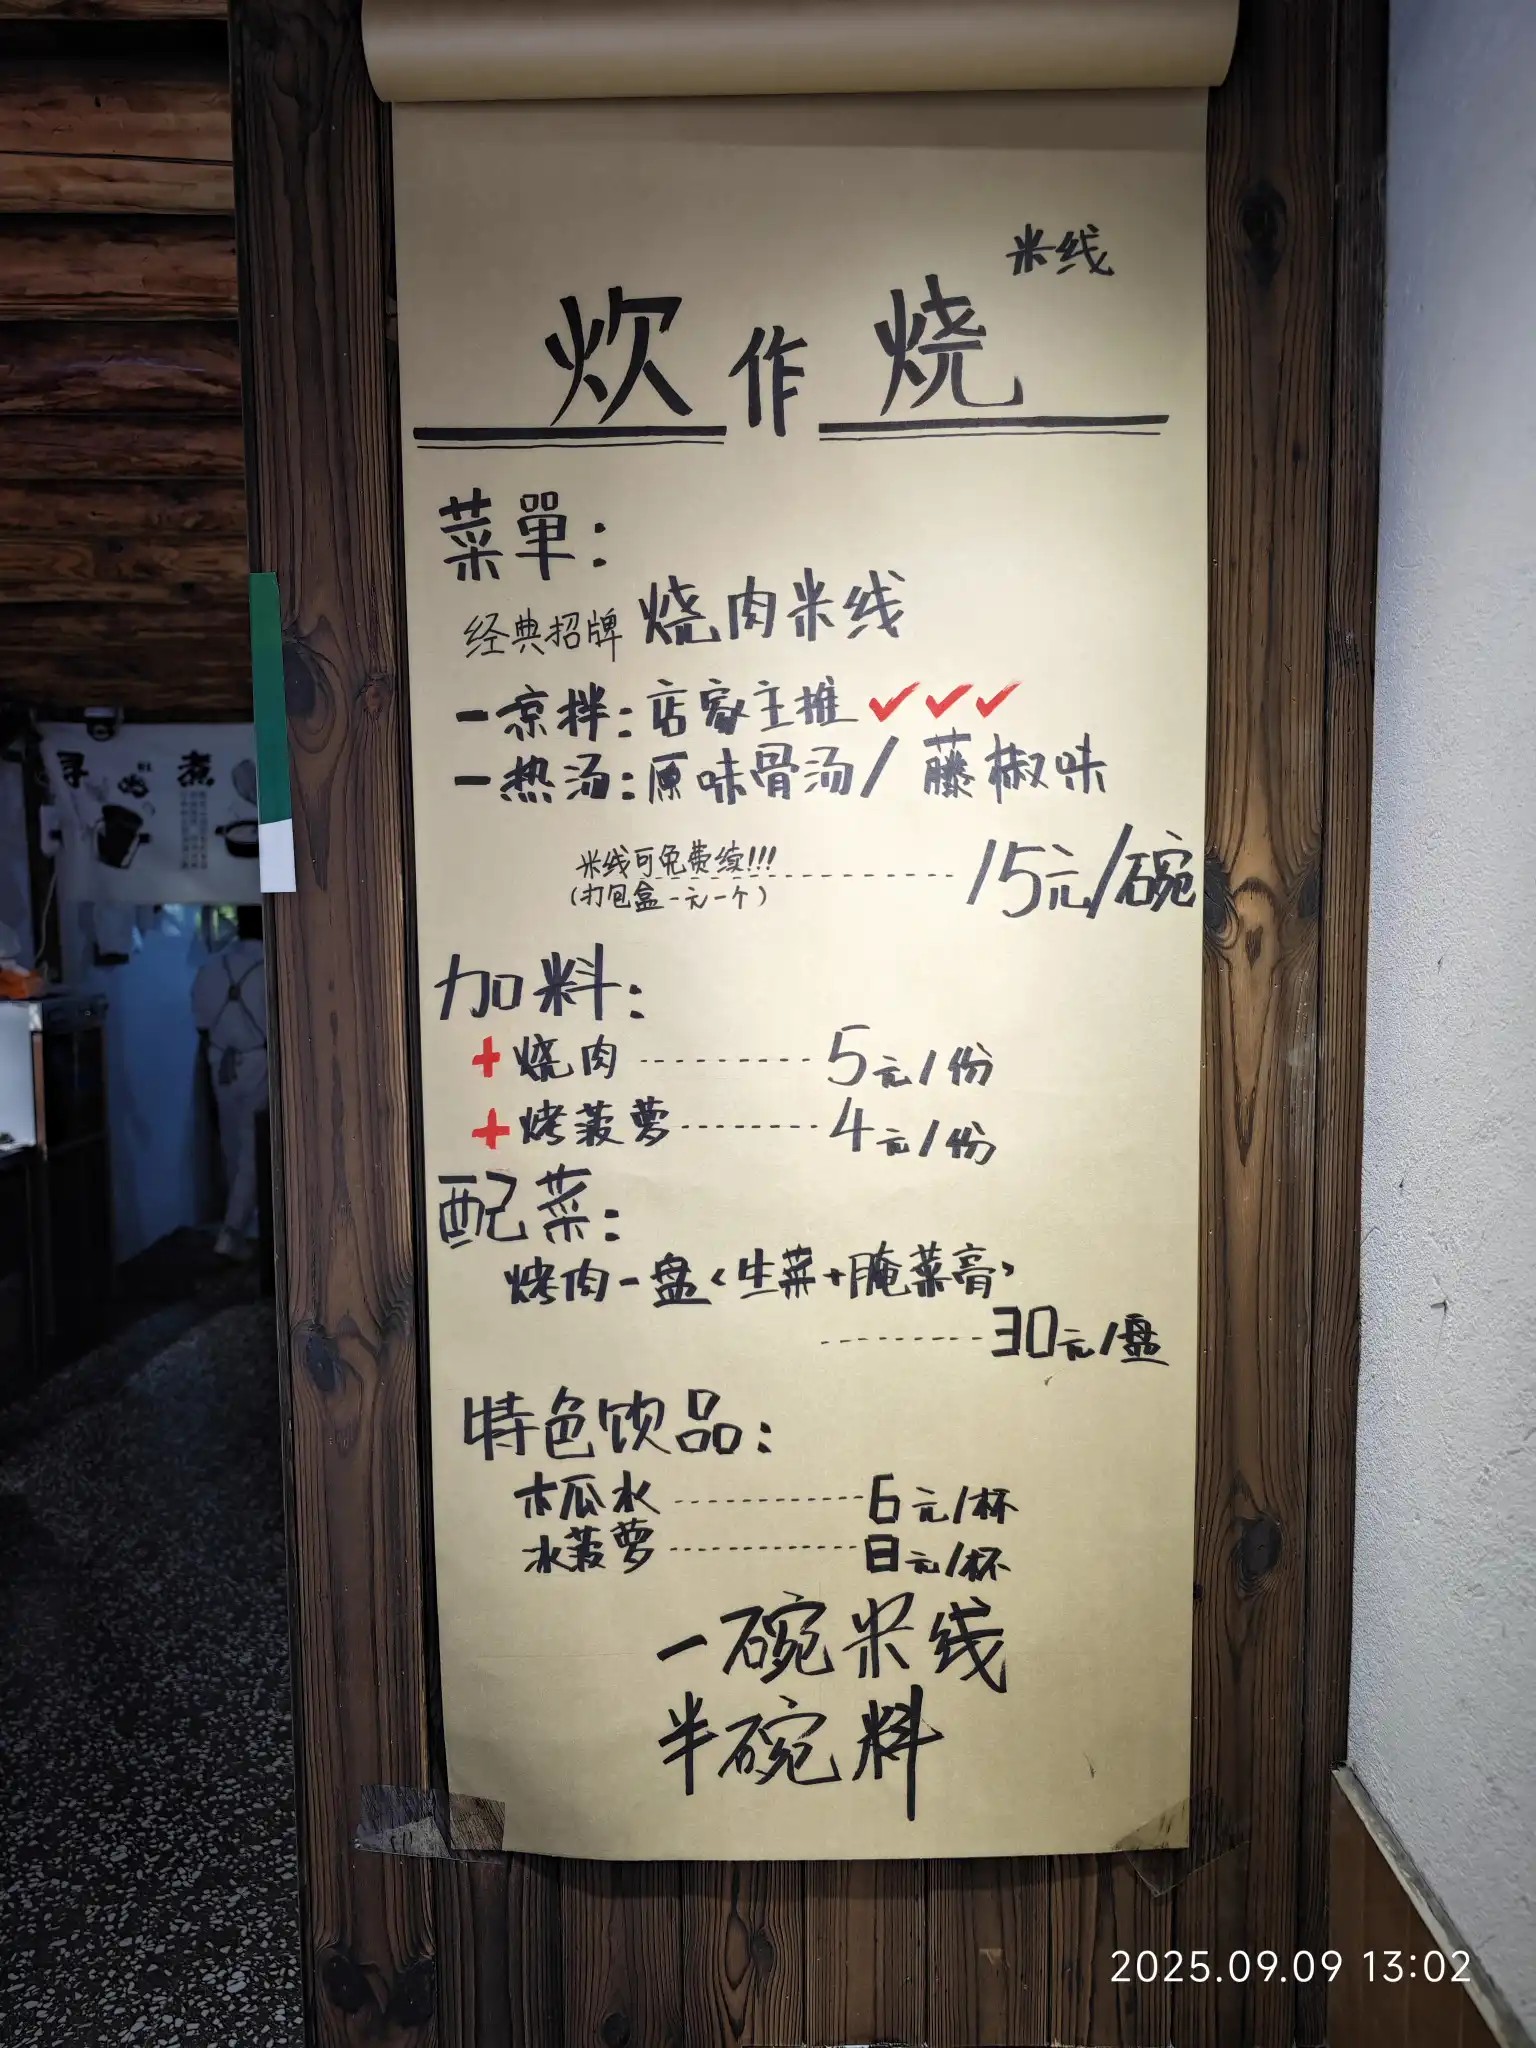 米线
炊作烧
菜單:
经典招牌 烧肉米线
-凉拌:店家主推✓✓✓
-热汤:原味骨汤/藤椒味
米线可免费续!!!
(打包盒一元一个)
15元/碗
加料:
+烧肉------------5元/份
+烤菠萝----------4元/份
配菜:
烤肉一盘<生菜+腌菜膏>
-----------30元/盘
特色饮品:
木瓜水-------------6元/杯
水菠萝-------------8元/杯
一碗米线
半碗料
煮
2025.09.09 13:02